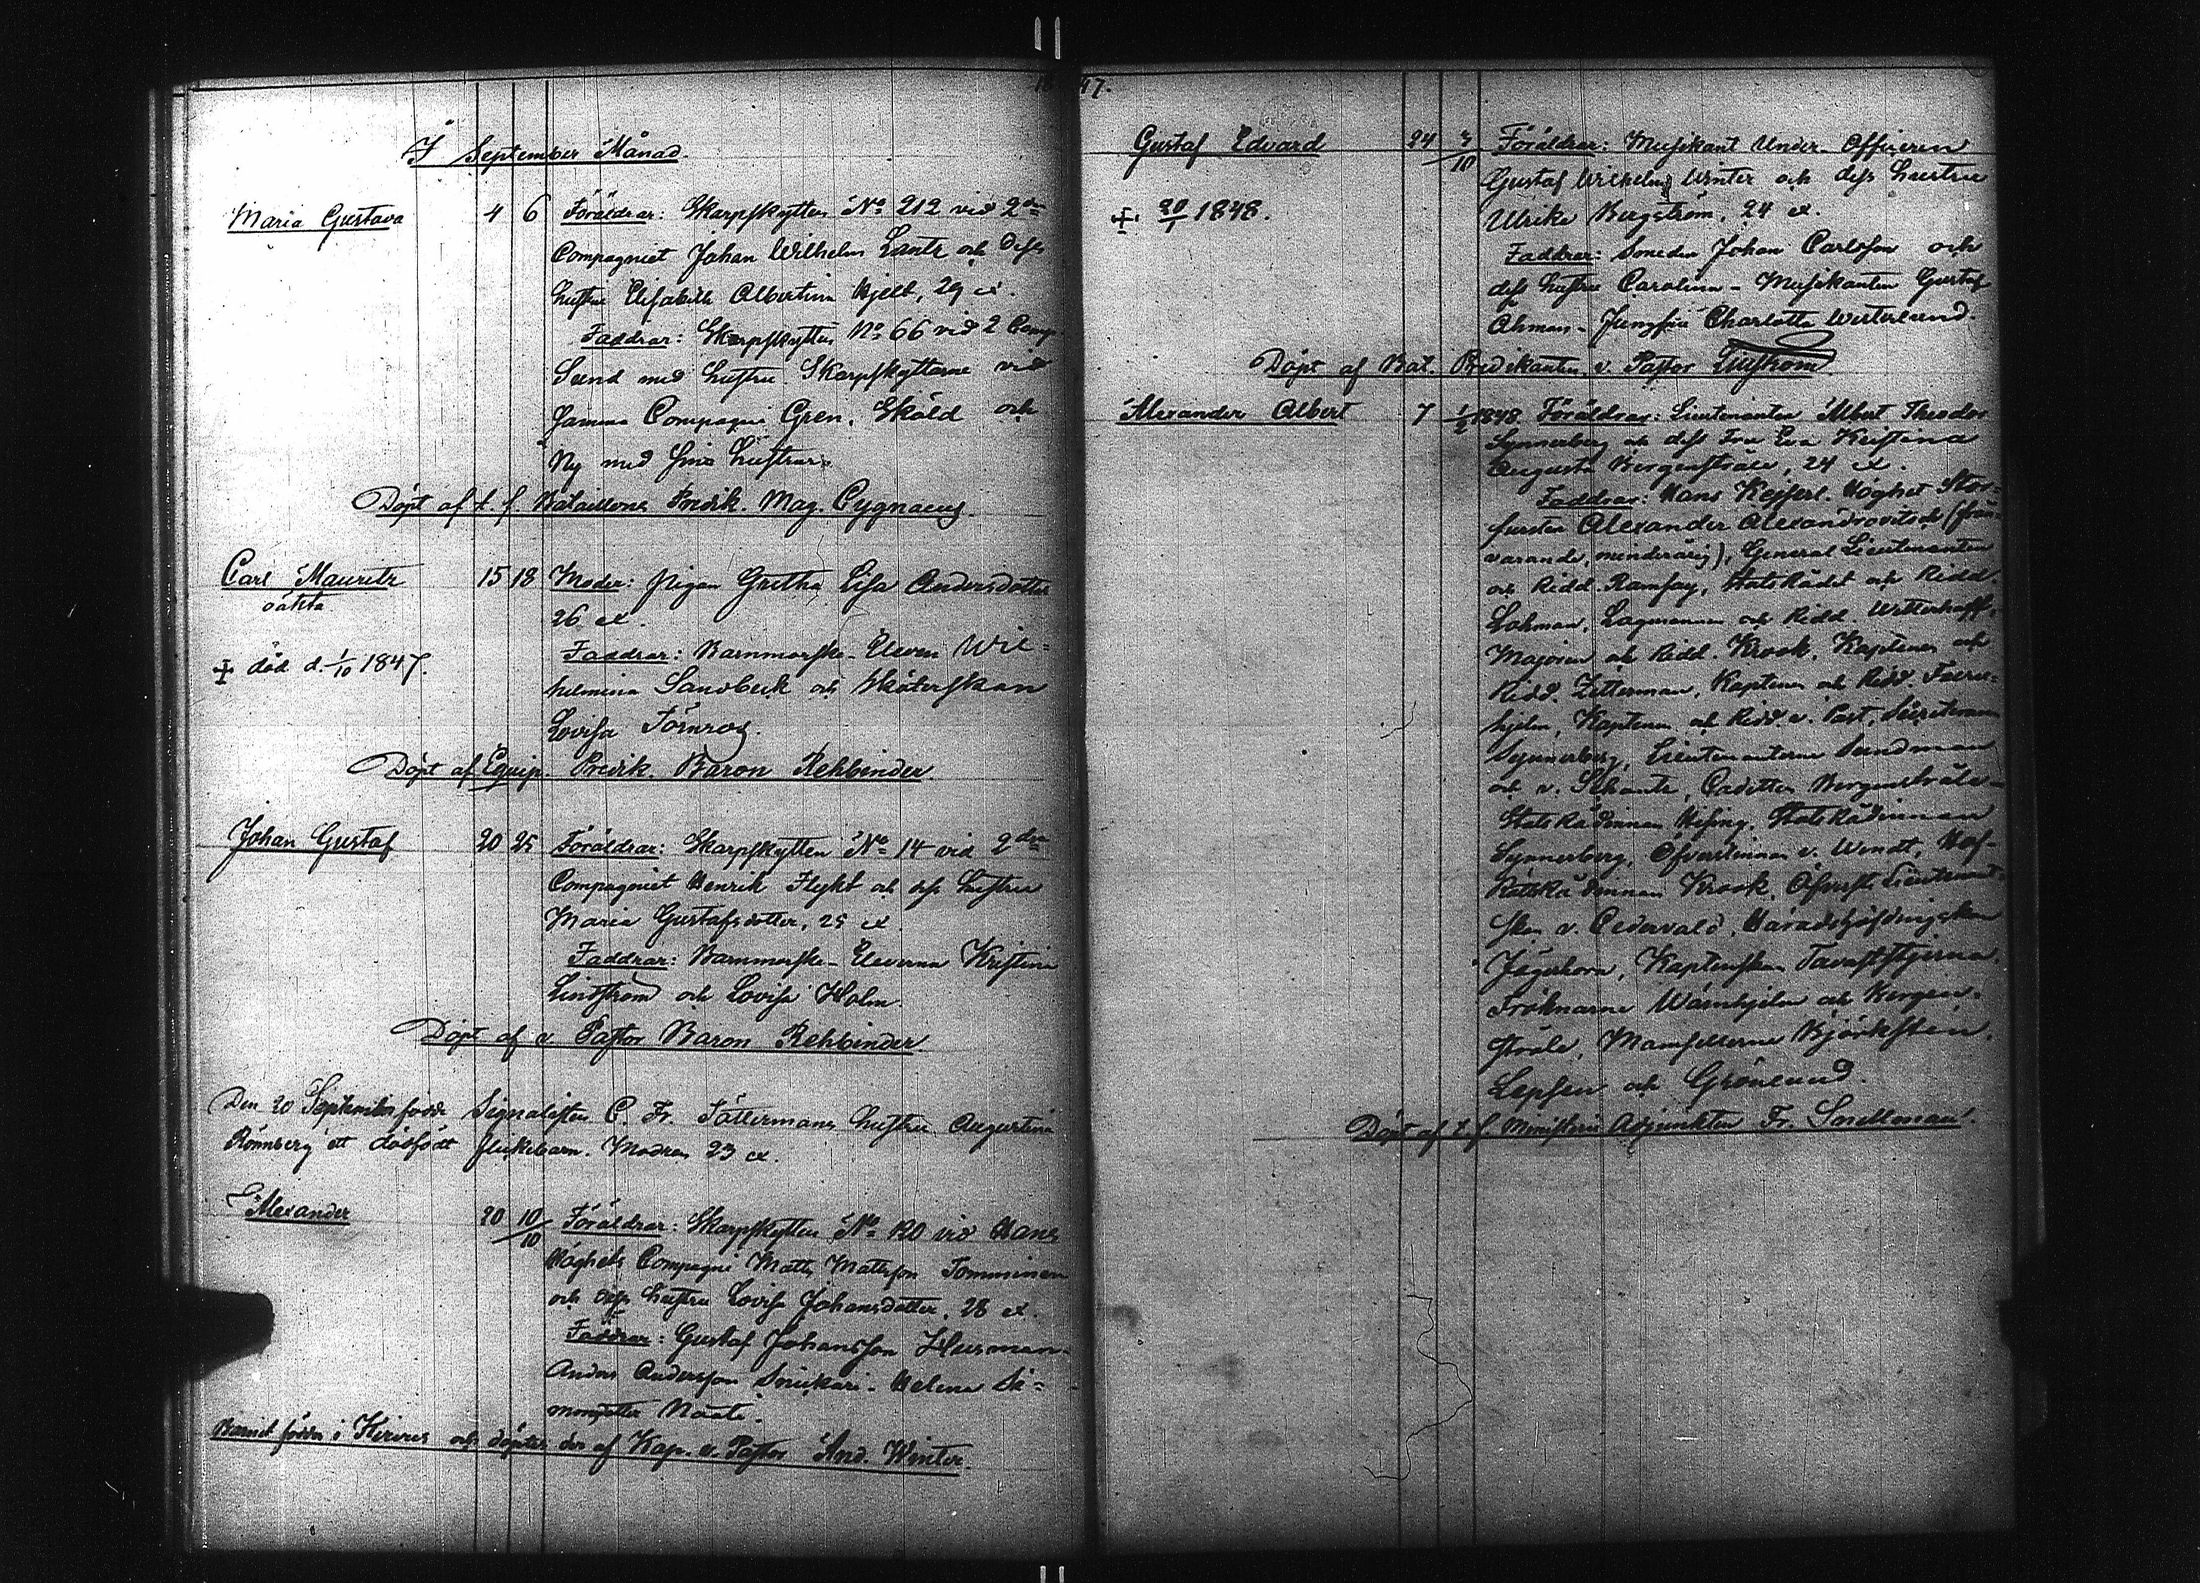 1847.
I September Månad.
Maria Gustava 4 6 Föräldrar: Skarpskytten No 212 vid 2dra
Compagniet Johan Wilhelm Lantz och dess
hustru Elisabeth Albertina Hjelt, 29 et.
Faddrar: Skarpskytten No 66 vid 2 Comp.
Sund med hustru. Skarpskyttarne vid
samma Compagni Gren, Sköld och
Ny med sina hustrur.
Döpt af t. f. Bataillons Predik. Mag. Cygnaeus.
Carl Mauritz 15 18 Moder: pigan Gretha Lisa Andersdotter
oäkta 26 et.
Faddrar: Barnmorske-Eleven Wil=
‡ död d. 1/10 1847.
helmina Sandbeck och Sköterskan
Lovisa Törnros.
Döpt af Equip. Predik. Baron Rehbinder
Johan Gustaf 20 25 Föräldrar: Skarpskytten No 14 vid 2dra
Compagniet Henrik Flykt och dess hustru
Maria Gustafsdotter, 25 et.
Faddrar: Barnmorske-Eleverna Kristina
Lindström och Lovisa Holm.
Döpt af v. Pastor Baron Rehbinder.
Den 20 September födde Signalisten C. Fr. Sättermans hustru Augustina
Rönnberg ett dödfödt flickebarn. Modren 23 et.
Alexander 20 10/10 Föräldrar: Skarpskytten No 120 vid Hans
Höghets Compagni Matts Mattsson Tomminen
och dess hustru Lovisa Johansdotter, 28 et.
Faddrar: Gustaf Johansson Husman-
Anders Andersson Snickari- Helena Si=
monsdotter Naati.
Barnet föddes i Hirvus och döptes der af Kap. v. Pastor And. Winter.
Gustaf Edvard 24 3/10 Föräldrar: Musikant Under-Officeren
Gustaf Wilhelm Winter och dess hustru
‡. 20/1 1848.
Ulrika Bergström, 24 et.
Faddrar: Smeden Johan Carlsson och
dess hustru Carolina- Musikanten Gustaf
Åhman- Jungfru Charlotta Westerlund.
Döpt af Bat. Predikanten v. Pastor
Alexander Albert 7 1/2 1848. Föräldrar: Lieutenanten Albert Theodor
Synnerberg och dess Fru Eva Kristina
Augusta Bergenstråle, 24 et.
Faddrar: Hans Kejserl. Höghet Stor-
fursten Alexander Alexandrovitsch (från-
varande, minderårig), General Lieutenanten
och Ridd. Ramsay, Statsrådet och Ridd.
Lohman, Lagmannen och Ridd. Wetterhoff,
Majoren och Ridd. Krook, Kaptenen och
Ridd. Zitterman, Kaptenen och Ridd. Furu-
hjelm, Kaptenen och Ridd. v. Post,
Synnerberg, Lieutenanterne Sundman
och v. Schantz, Cadetten Bergenstråle-
Statsrådinnan Hising, Statsrådinnan
Synnerberg, Öfverstinnan v. Wendt, Hof-
Rådinnan Krook, Öfverste Lieutenant-
skan v. Cedervald, Häradshöfdingskan
Jägerhorn, Kaptenskan Tavaststjerna,
Fröknarne Wärnhjelm och Bergen-
stråle, Mamsellerne Björksten,
Lepsén och Grönlund.
Döpt af t. f. Ministerii Adjunkten Fr. Snellman.